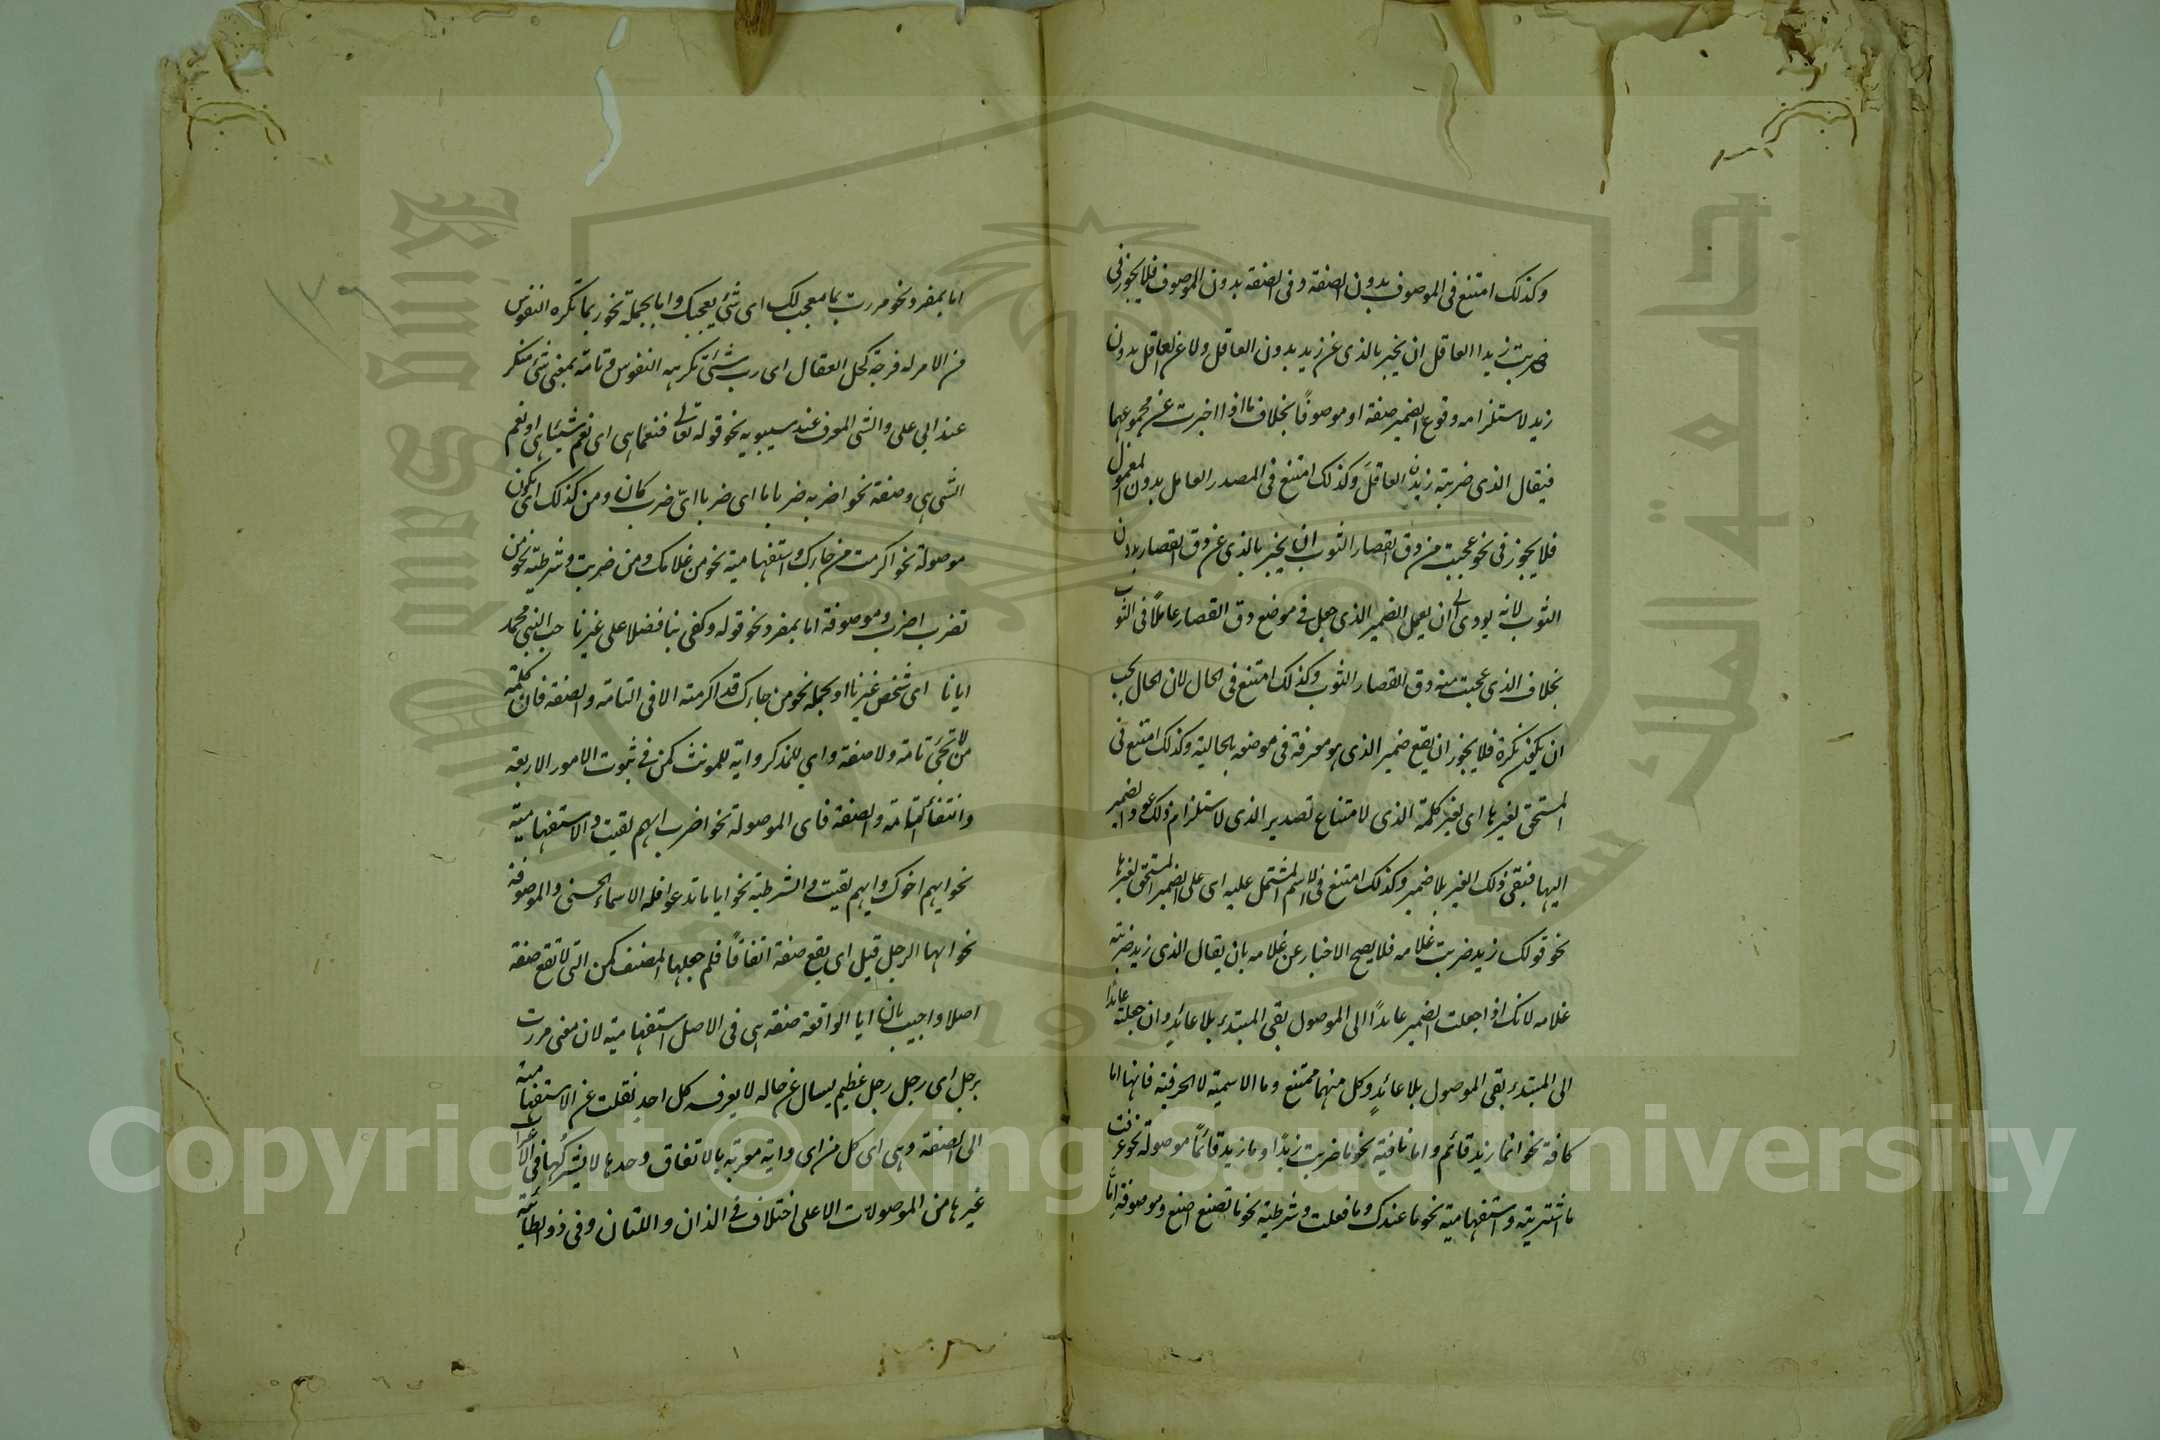 وكذلك امتنع فى الموصوف بدون الصفة وفى الصفة بدون الموصوف فلا يجوز فى
ضربت زيدا العاقل ان يخبر بالذى عن زيد بدون العاقل ولا عن العاقل بدون
زيد لاستلزامه وقوع الضمير صفة او موصوفًا بخلاف ما اذا اخبرت عن مجموعهما
فيقال الذى ضربته زيدٌ العاقل وكذلك امتنع فى المصدر العامل بدون المعمول
فلا يجوز فى نحو عجبت من دق القصار الثوب ان يخبر بالذى عن دق القصار بدون
الثوب لانه يودى الى ان يعمل الضمير الذى جعل فى موضع دق القصار عاملًا فى الثوب
بخلاف الذى عجبت منه دق القصار الثوب وكذلك امتنع فى الحال لان الحال يجب
ان يكون نكرة فلا يجوز ان يقع ضمير الذى هو معرفة فى موضعه بالحالية وكذلك امتنع فى
المستحق لغيرها اى لغير كلمة الذى لامتناع تصدير الذى لاستلزام ذلك عود الضمير
اليها فبقى ذلك الغير بلا ضمير وكذلك امتنع فى الاسم المشتمل عليه اى على الضمير المستحق لغيرها
نحو قولك زيد ضربت غلامه فلا يصح الاخبار عن غلامه بان يقال الذى زيد ضربته
غلامه لانك اذا جعلت الضمير عائدًا الى الموصول بقى المبتدء بلا عائدٍ وان جعلته عائدًا
الى المبتدء بقى الموصول بلا عائدٍ وكل منهما ممتنع وما الاسمية لا الحرفية فانها اما
كافة نحو انما زيد قائم واما نافية نحو ما ضربت زيدًا وما زيد قائمًا موصولة نحو عرفت
ما اشتريته واستفهامية نحو ما عندك وما فعلت وشرطية نحو ما تصنع اصنع وموصوفة امّا
١٣٩
اما بمفرد نحو مررت بما معجب لك اى شئ يعجبك واما بجملة نحو ربما تكره النفوس
من الامر له فرجة كحل العقال اى رب شئ تكرهه النفوس وتامة بمعنى شئ منكر
عند ابي على والشى المعرف عند سيبويه نحو قوله تعالى فنعما هى اى نعم شيئا هى او نعم
الشى هى وصفة نحو اضربه ضربا ما اى ضربا اىّ ضرب كان ومن كذلك اى يكون
موصولة نحو اكرمت من جاءك واستفهامية نحو من غلامك ومن ضربت وشرطية نحو من
تضرب اضرب وموصوفة اما بمفرد نحو قوله وكفى بنا فضلا على غيرنا حب النبى محمد
ايانا اى شخص غيرنا او بجملة نحو من جاءك قد اكرمته الا فى التامة والصفة فان كلمة
من لا تجئ تامة ولا صفة واي للمذكر واية للمونث كمن فى ثبوت الامور الاربعة
وانتفاء التامة والصفة فاى الموصولة نحو اضرب ايهم لقيت والاستفهامية
نحو ايهم اخوك وايهم لقيت والشرطية نحو ايا ما تدعوا فله الاسماء الحسنى والموصوفة
نحو ايها الرجل قيل اى يقع صفة اتفاقًا فلم جعلها المصنف كمن التى لا تقع صفة
اصلا واجيب بان ايا الواقعة صفة هى فى الاصل استفهامية لان معنى مررت
برجل اى رجل رجل عظيم يسال عن حاله لا يعرفه كل احد نقلت عن الاستفهامية
الى الصفة وهى اى كل من اى واية معربة بالاتفاق وحدها لا يشركُها فى الاعراب
غيرها من الموصولات الا على اختلاف فى الذان واللتان وفى ذو الطائية
Copyright © King Saud University
King Saud University
جامعة الملك سعود
1957